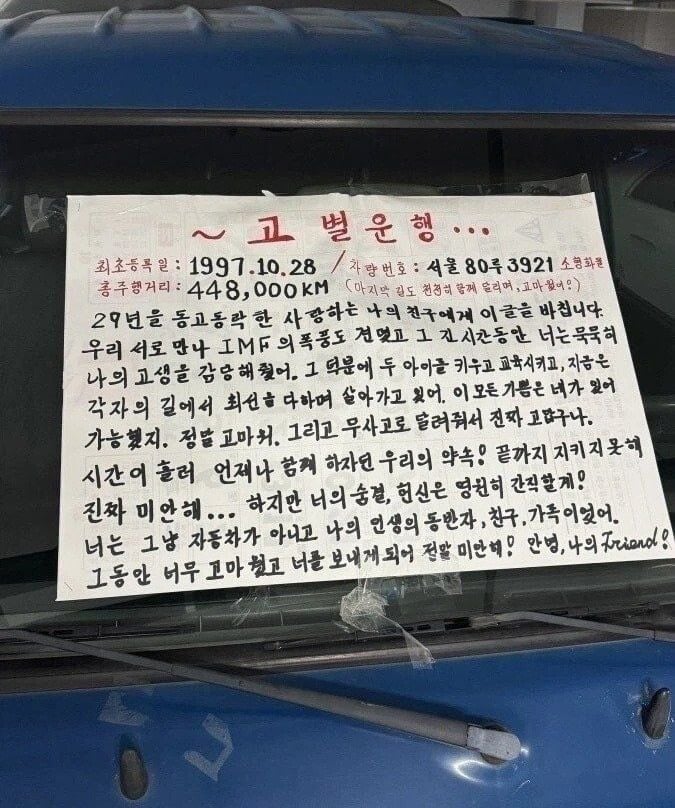 ~ 고 별 운 행 ...
최초등록일 : 1997.10.28 / 차량번호 : 서울 80루 3921 소형화물
총주행거리 : 448,000KM (마지막 길도 천천히 함께 달리며, 고마웠어?)
29년을 동고동락 한 사랑하는 나의 친구에게 이글을 바칩니다.
우리 서로 만나 IMF의 폭풍도 견뎠고 그 긴 시간동안 너는 묵묵히
나의 고생을 감당해줬어. 그 덕분에 두 아이글 키우고 교육시키고, 지금은
각자의 길에서 최선을 다하며 살아가고 있어. 이 모든 기쁨은 네가 있어
가능했지. 정말 고마워. 그리고 무사고로 달려줘서 진짜 고맙구나.
시간이 흘러 언제나 함께 하자던 우리의 약속! 끝까지 지키지 못해
진짜 미안해... 하지만 너의 숨결, 헌신은 영원히 간직할게!
너는 그냥 자동차가 아니고 나의 인생의 동반자, 친구, 가족이었어.
그동안 너무 고마웠고 너를 보내게 되어 정말 미안해! 안녕, 나의 Friend!